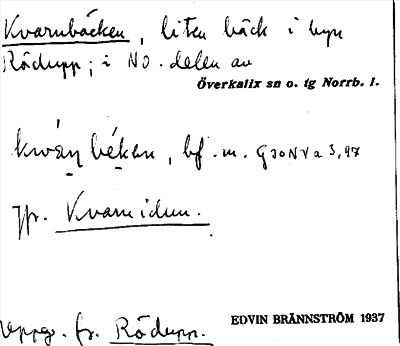 Kvarnbäcken, liten bäck i byn
Rödupp; i NO. delen av
Överkalix sn o. tg Norrb. l.
kwáṇ béken, bf. m.
Jfr. Kvarnidun.
Uppg. fr. Rödupp.
EDVIN BRÄNNSTRÖM 1937